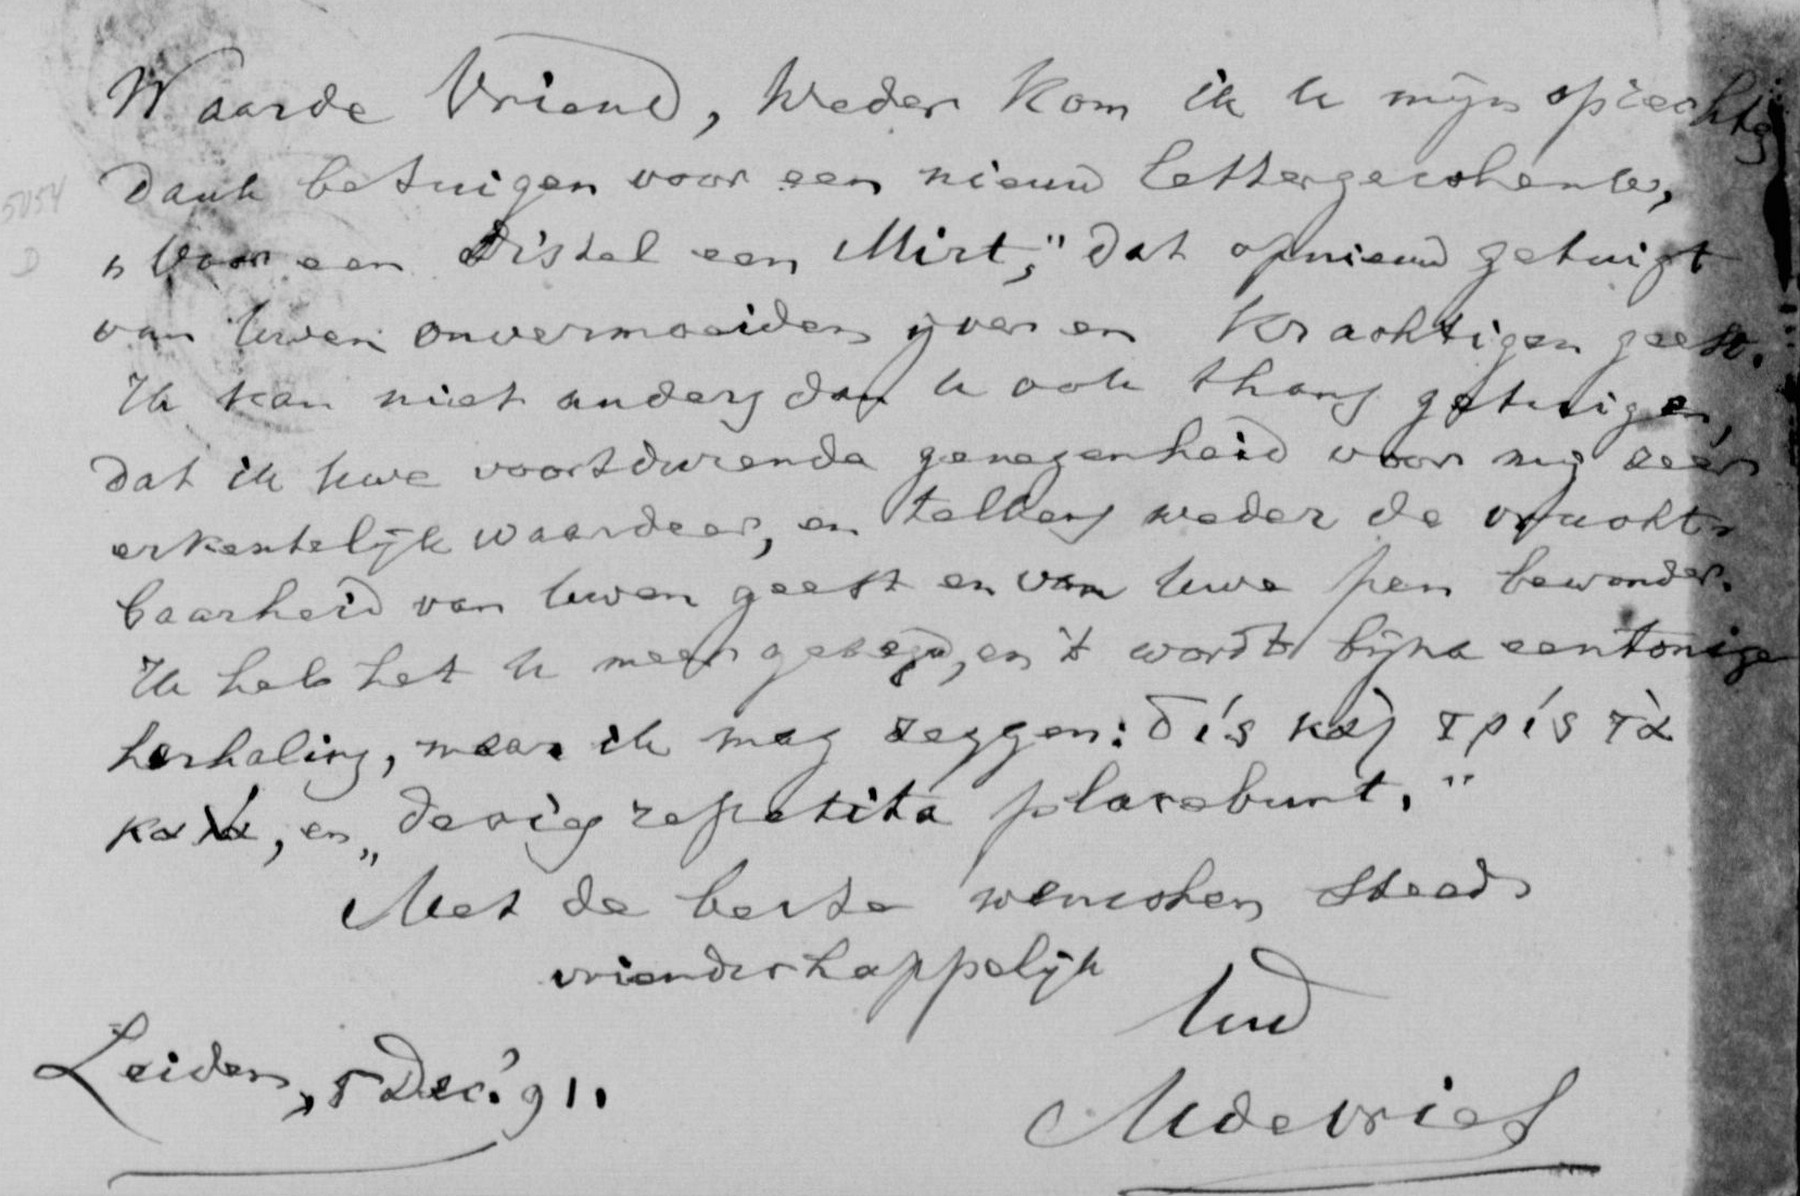 Waarde Vriend, Weder kom ik U mijn oprechte
dank betuigen voor een nieuw lettergeschenk,
„Voor een Distel een Mirt," dat opnieuw getuigt
van Uwen onvermoeiden ijver en krachtigen geest.
Ik kan niet anders dan U ook thans getuigen,
dat ik Uwe voortdurende genegenheid voor mij zeer
erkentelijk waardeer, en telkens weder de vrucht-
baarheid van Uwen geest en van Uwe pen bewonder.
Ik heb het U meer gezegd, en 't wordt bijna eentonige
herhaling, maar ik mag zeggen: δίς καὶ τρίς τὰ
καλά, en „decies repetita placebunt."
Met de beste wenschen steeds
vriendschappelijk
Uw
MdeVries
Leiden, 5 Dec. '91.
5054
D